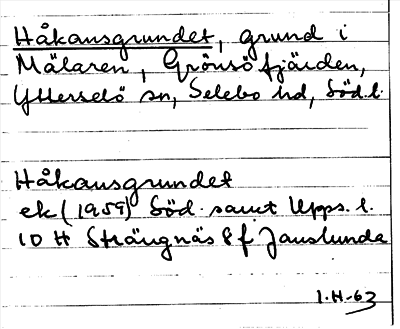 Håkansgrundet, grund i
Mälaren, Grönsöfjärden,
Ytterselö sn, Selebo hd, Söd.l.
Håkansgrundet
ek (1959) Söd. samt Upps. l.
10 H Strängnäs 8 f Janslunda
1.H-63